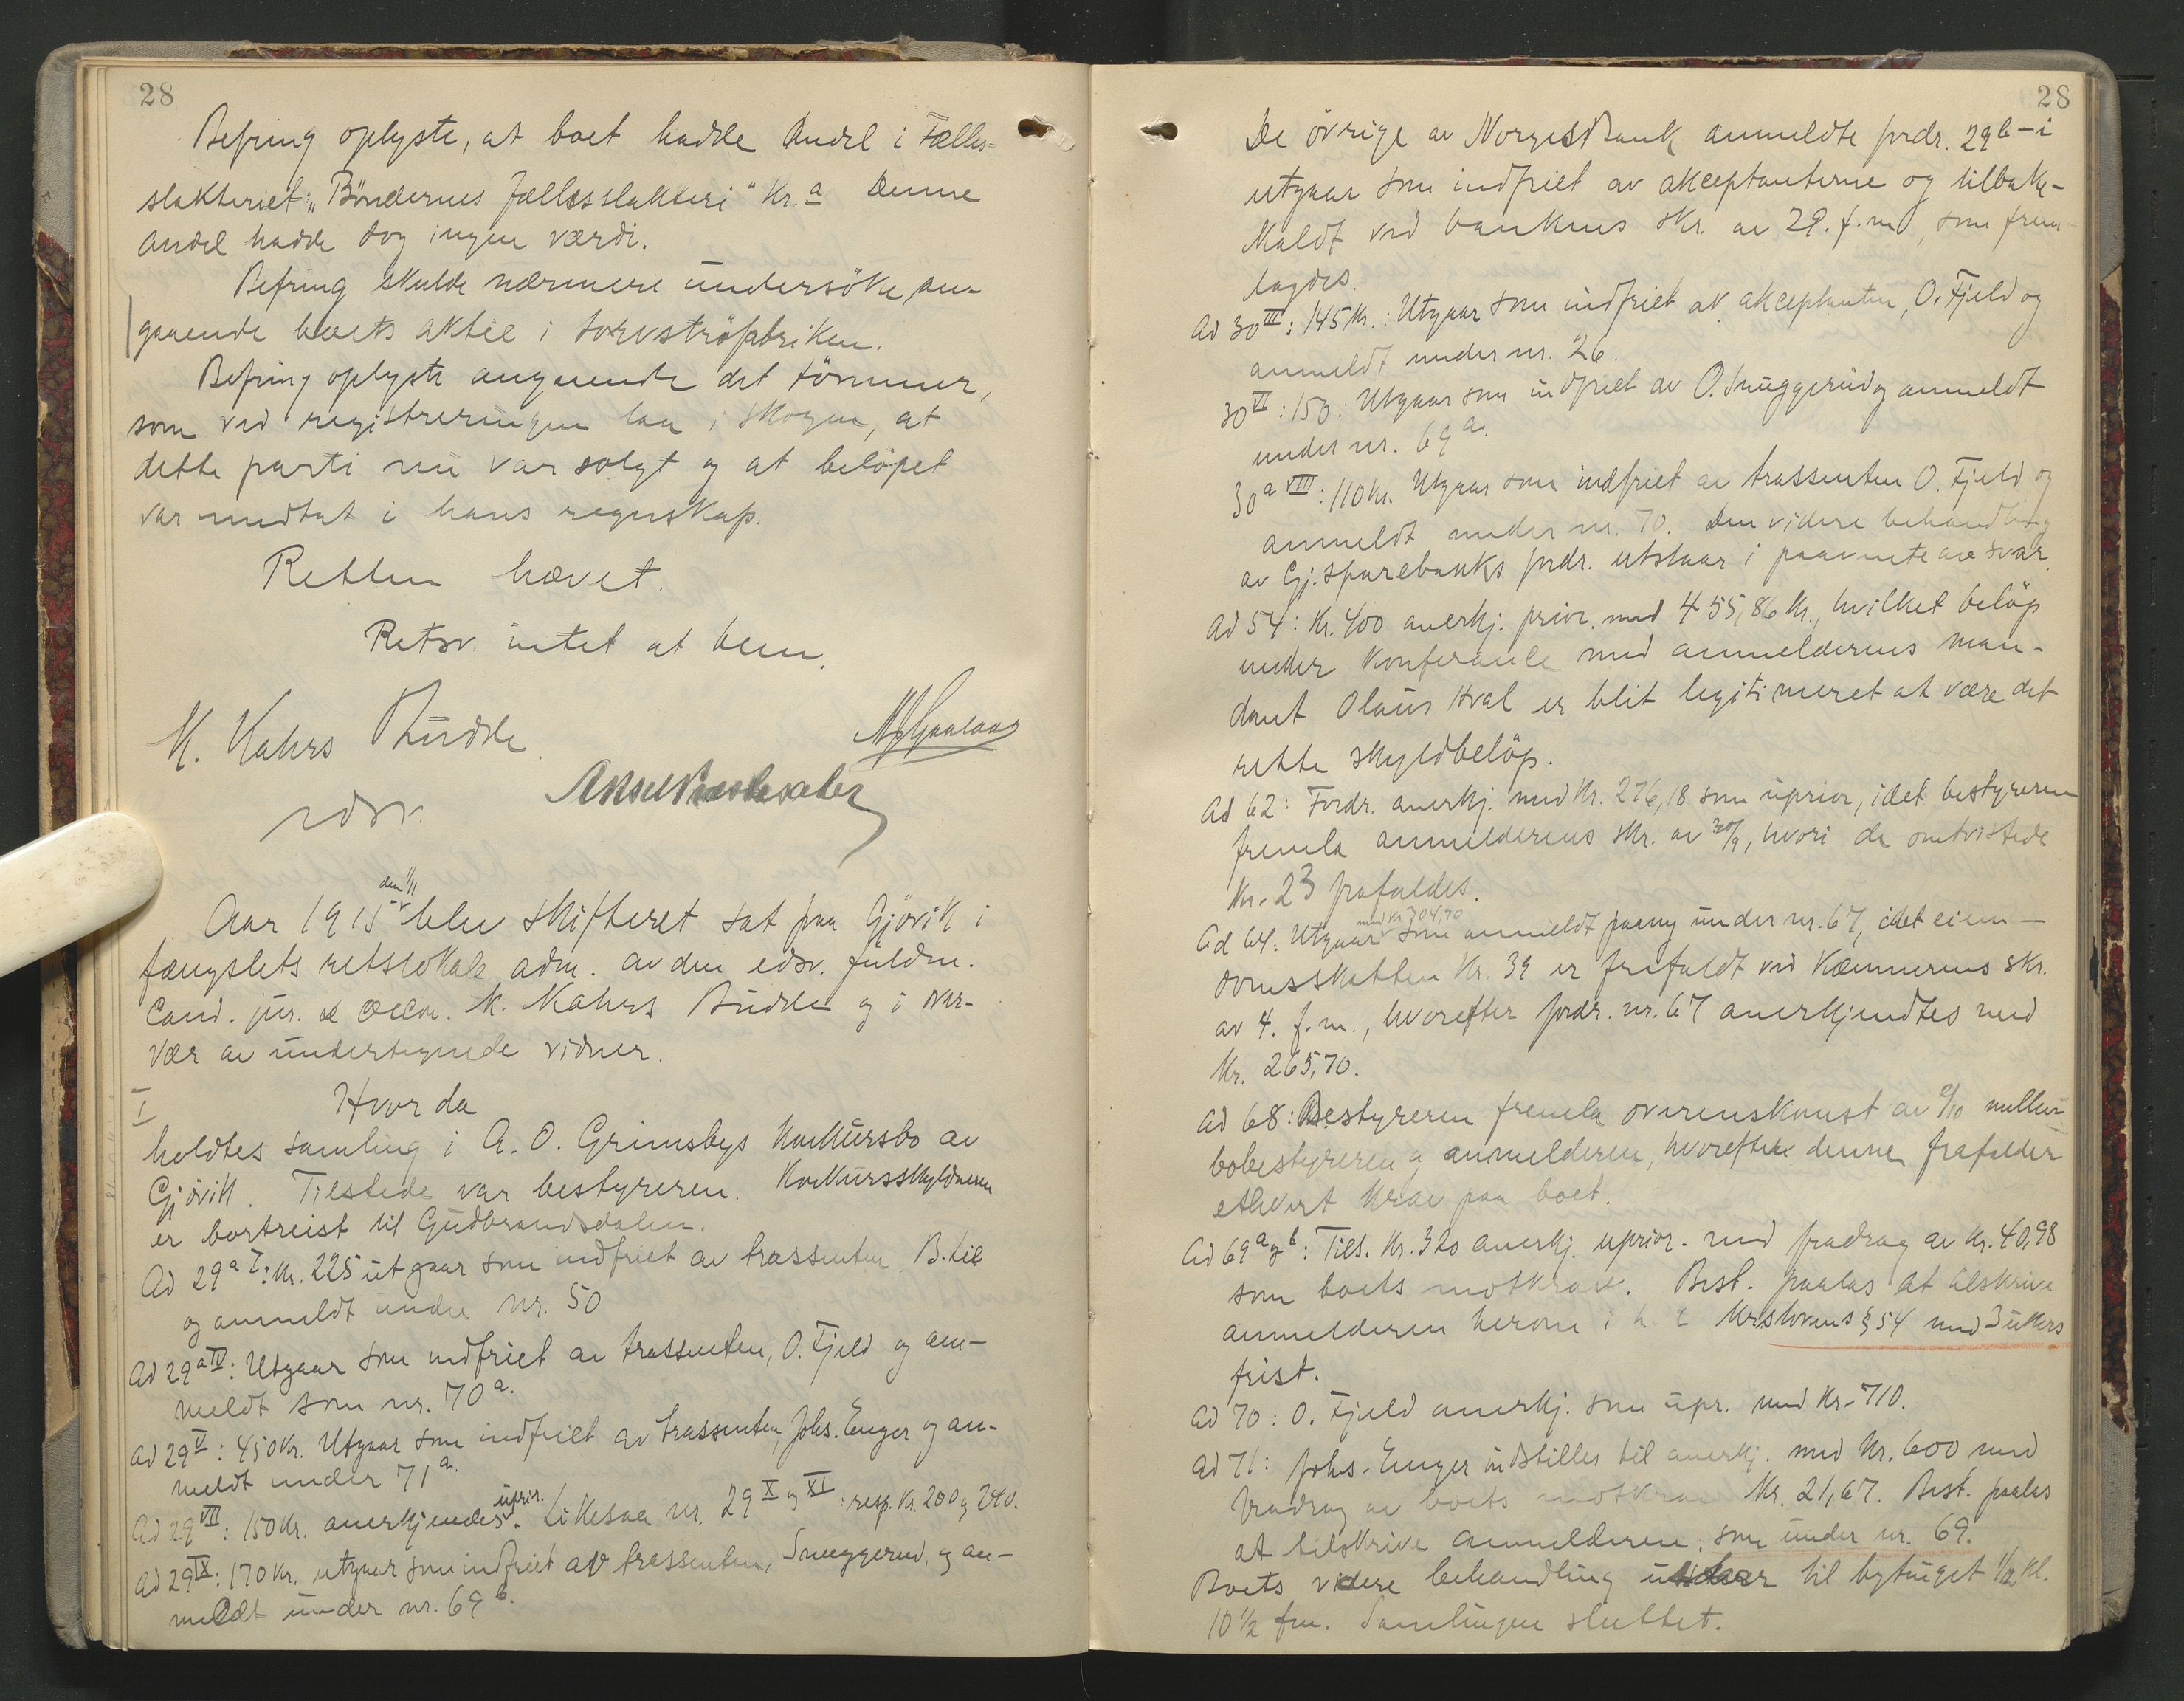 28
Befring oplyste, at boet hadde Andel i Fælles-
slakteriet: "Bøndernes Fællesslakteri" Kr.a Denne
andel hadde dog ingen værdi.
Befring skulde nærmere undersöke an-
gaaende boets aktie i torvströfabriken.
Befring oplyste angaaende det tömmer,
som ved registreringen laa i skogen, at
dette parti nu var solgt og at belöpet
var medtat i hans regnskap.
Retten hævet.
Retsv. intet at bem.
K. Kahrs Budde
edsv.
Aar 1915 den 1/11 blev skifteret sat paa Gjövik i
fængslets retslokale adm. av den edsv. fuldm.
Cand. jur. & oecon. K. Kahrs Budde og i over-
vær av undertegnede vidner.
I
Hvor da
holdtes samling i A. O. Grimsbys konkursbo av
Gjövik. Tilstede var bestyreren. Konkursskyldneren
er bortreist til Gudbrandsdalen.
Ad 29 a I: Kr. 225 utgaar som indfriet av trassenten B.
og anmeldt under Nr. 50
Ad 29 a IV: Utgaar som indfriet av trassenten, O. Fjeld og an-
meldt som nr. 70 a.
Ad 29 V: 450 Kr. Utgaar som indfriet av trassenten, Johs. Enger og an-
meldt under 71 a.
Ad 29 VII: 150 Kr. anerkjendes uprior. Likesaa nr. 29 X og XI: resp. Kr. 200 og 240.
Ad 29 IX: 170 Kr. utgaar som indfriet av trassenten, Snuggerud, og an-
meldt under nr. 69 b.
28
De övrige av Norges Bank anmeldte fordr. 29 b - i
utgaar som indfriet av akceptanterne og tilbake-
kaldt ved bankens skr. av 29. f.m., som frem-
lagdes.
Ad 30 III: 145 Kr.: Utgaar som indfriet av akceptanten, O. Fjeld og
anmeldt under nr. 26.
30 VI: 150: Utgaar som indfriet av O. Snuggerud og anmeldt
under nr. 69 a.
30 a VIII: 110 Kr. Utgaar som indfriet av trassenten O. Fjeld og
anmeldt under nr. 70. Den videre behandling
av Gj. sparebanks fordr. utstaar i paavente av svar.
Ad 54: Kr. 400 anerkj. prior. med 455,86 Kr., hvilket belöp
under konferanse med anmelderens man-
dant Olaus Hval er blit legitimeret at være det
rette skyldbelöp.
Ad 62: Fordr. anerkj. med Kr. 276,18 som uprior, idet bestyreren
fremla anmelderens skr. av 30/9, hvori de omtvistede
Kr. 23 frafaldes.
Ad 64. Utgaar med Kr. 304,70 som anmeldt paany under nr. 67, idet eien-
domsskatten Kr. 39 er frafaldt ved Kæmnerens skr.
av 4. f.m., hvorefter fordr. nr. 67 anerkjendtes med
Kr. 265,70.
Ad 68: Bestyreren fremla overenskomst av 2/10 mellem
bobestyreren og anmelderen, hvorefter denne frafalder
ethvert krav paa boet.
Ad 69 a og b: Tils. Kr. 320 anerkj. uprior. med fradrag av Kr. 40,98
som boets motkrav. Best. paalas at tilskrive
anmelderen herom i h. t. Krslovens § 54 med 3 ukers
frist.
Ad 70: O. Fjeld anerkj. som upr. med Kr. 710.
Ad 71: Johs. Enger indstilles til anerkj. med Kr. 600 med
fradrag av boets motkrav Kr. 21,67. Best. paalas
at tilskrive anmelderen, som under nr. 69.
Boets videre behandling utstaar til bytinget Kl.
10 1/2 fm. Samlingen sluttet.